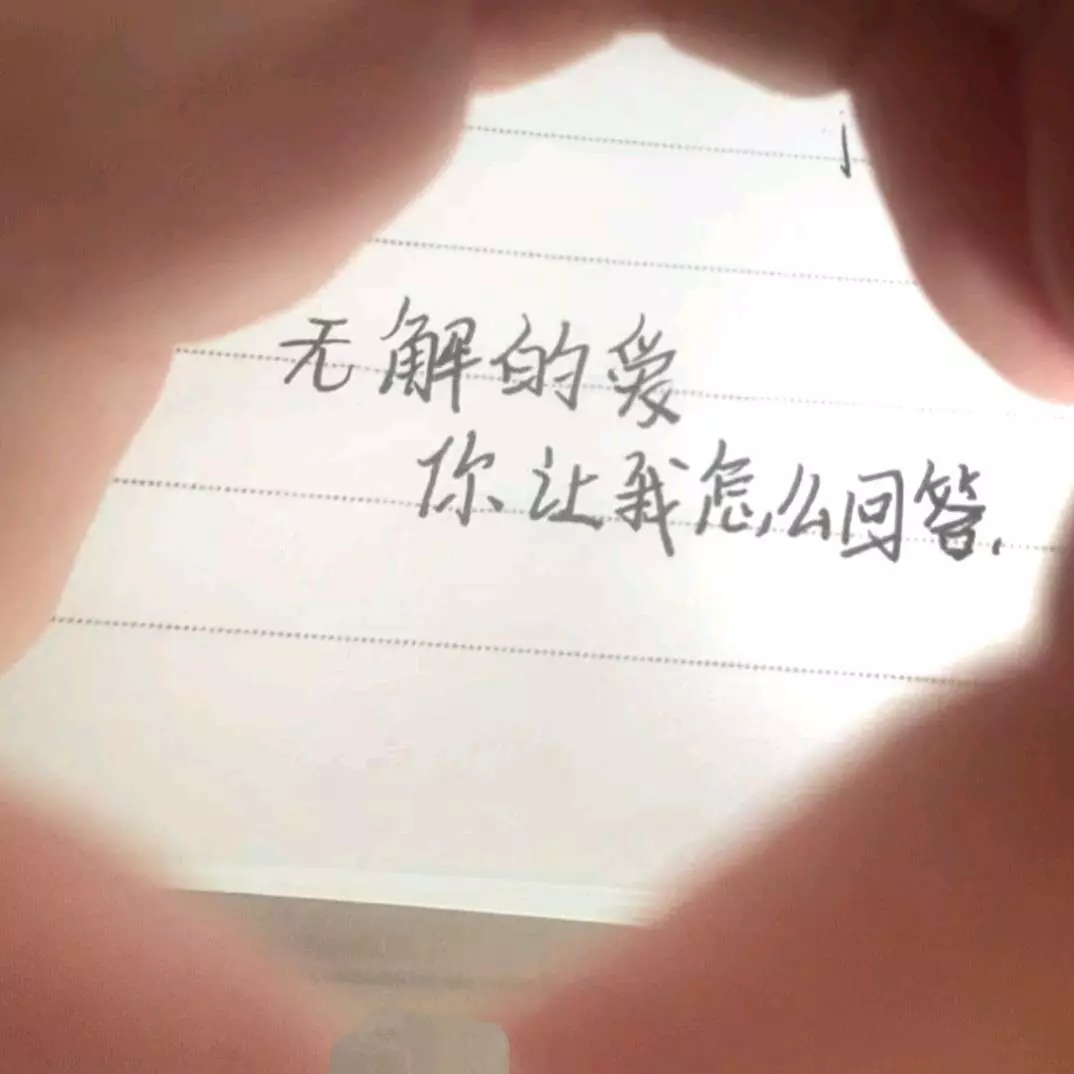 无解的爱
你让我怎么回答.